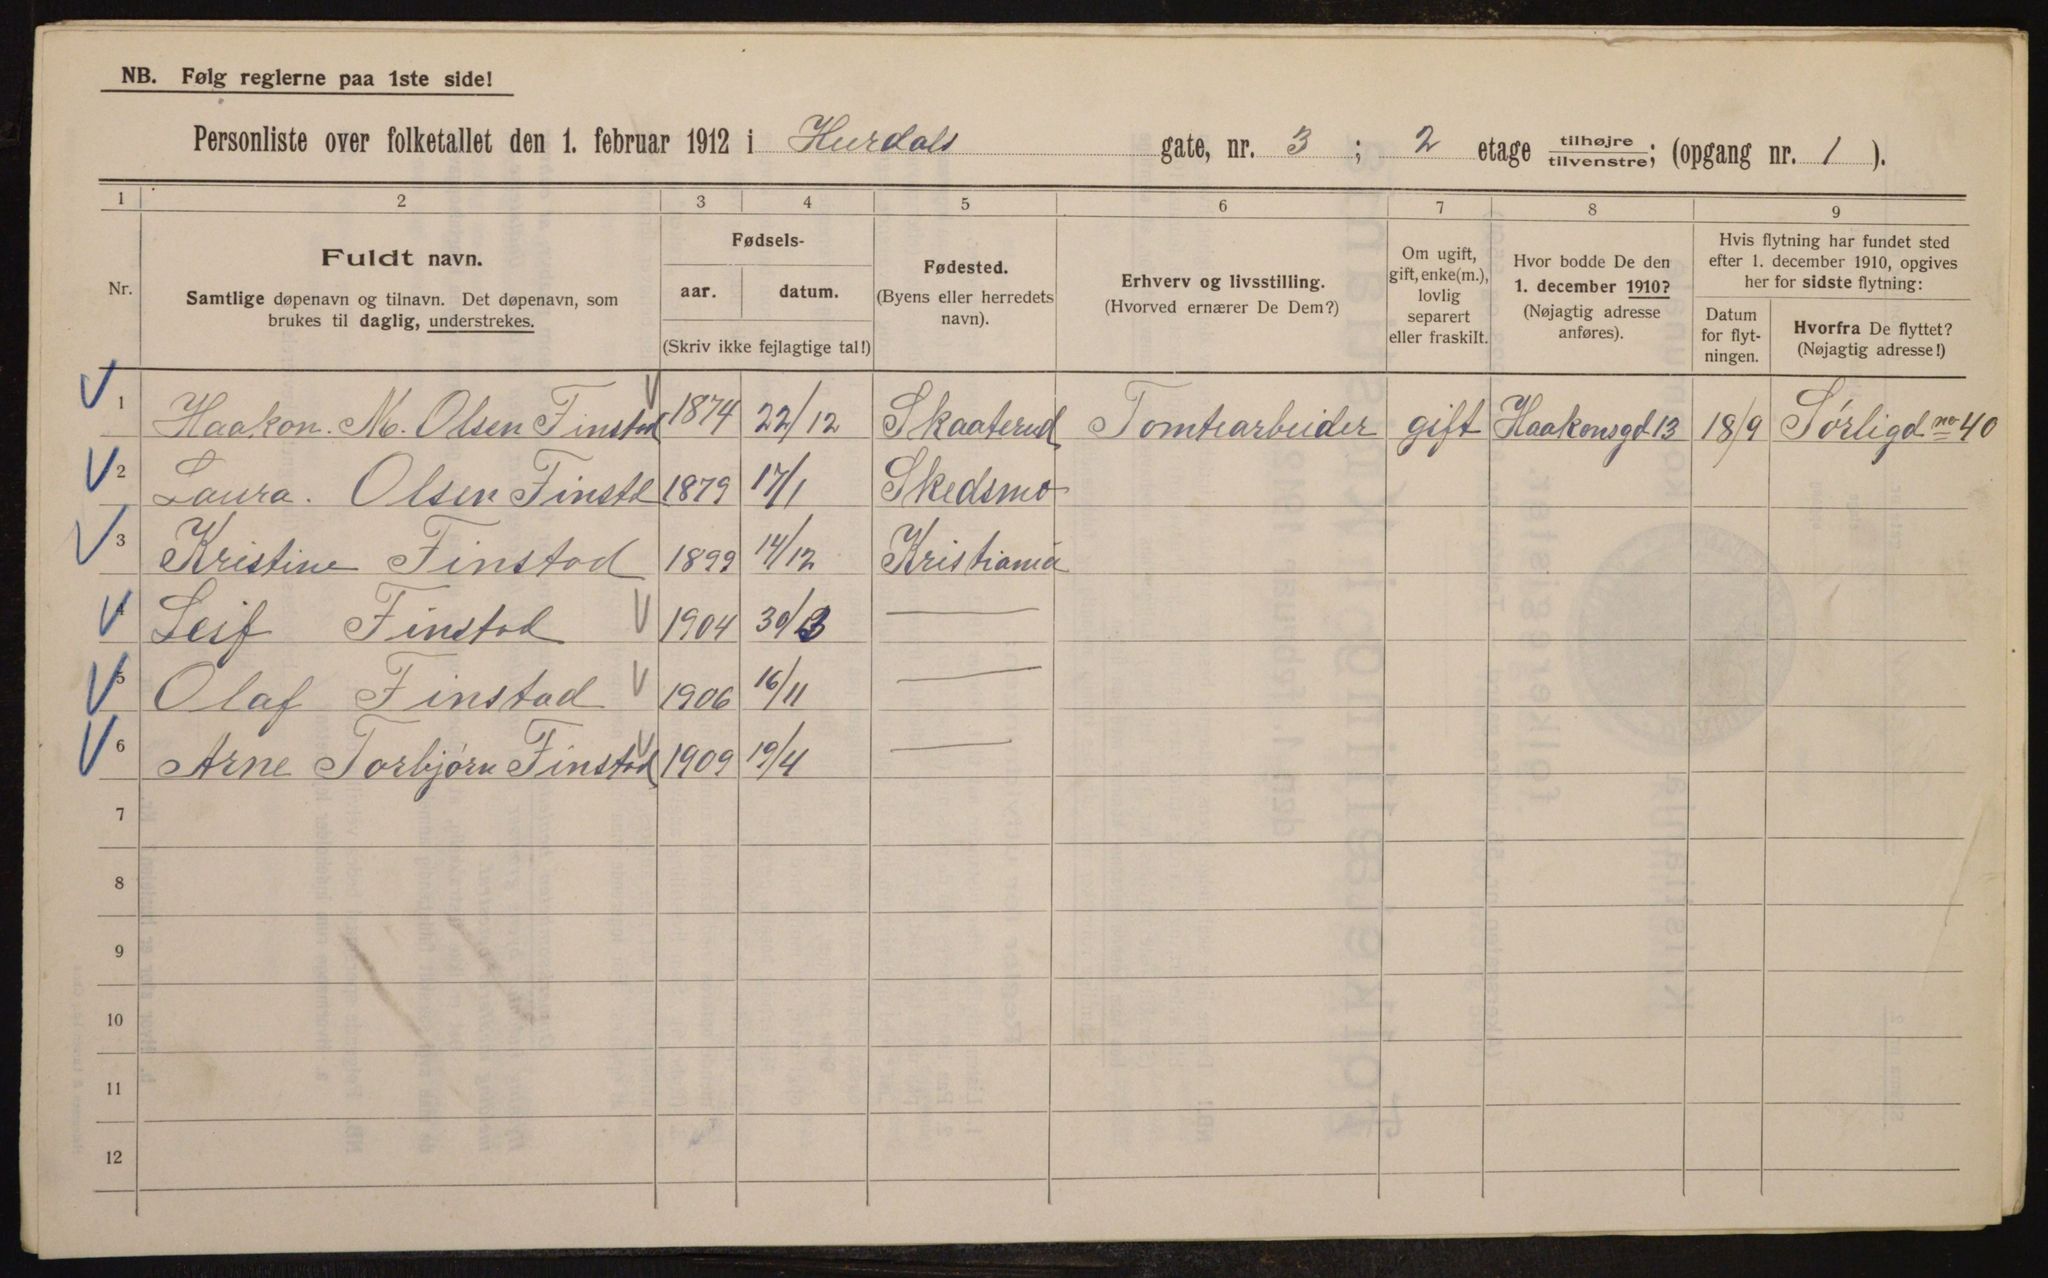 NB. Følg reglerne paa 1ste side!
Personliste over folketallet den 1. februar 1912 i Hurdals gate, nr. 3 ; 2 etage tilhøjre/tilvenstre; (opgang nr. 1 ).
1 2 3 4 5 6 7 8 9
Nr.
Fuldt navn.
Samtlige døpenavn og tilnavn. Det døpenavn, som
brukes til daglig, understrekes.
Fødsels-
aar. datum.
(Skriv ikke fejlagtige tal!)
Fødested.
(Byens eller herredets
navn).
Erhverv og livsstilling.
(Hvorved ernærer De Dem?)
Om ugift,
gift, enke(m.),
lovlig
separert
eller fraskilt.
Hvor bodde De den
1. december 1910?
(Nøjagtig adresse
anføres).
Hvis flytning har fundet sted
efter 1. december 1910, opgives
her for sidste flytning:
Datum
for flyt-
ningen.
Hvorfra De flyttet?
(Nøjagtig adresse!)
1 Haakon. M. Olsen Finstad 1874 22/12 Skaaterud Tomtearbeider gift Haakonsgd 13 18/9 Sørligd no 40
2 Laura. Olsen Finstd 1879 17/1 Skedsmo
3 Kristine Finstad 1899 14/12 Kristiania
4 Leif Finstad 1904 30/3 —
5 Olaf Finstad 1906 16/11 —
6 Arne Torbjørn Finstad 1909 19/4 —
7
8
9
10
11
12